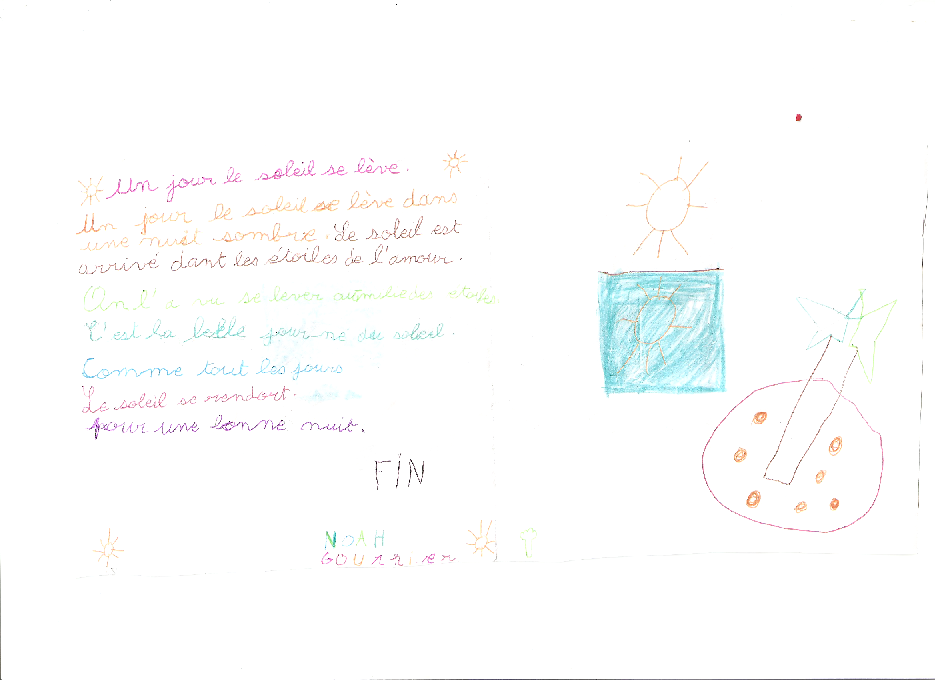 Un jour le soleil se lève.
Un jour le soleil se lève dans
une nuit sombre. Le soleil est
arrivé dant les étoiles de l'amour.
On l'a vu se lever
C'est la belle journe du soleil.
Comme tout les jours
Le soleil se rendort.
pour une bonne nuit.
FIN
NOAH
GOURRier